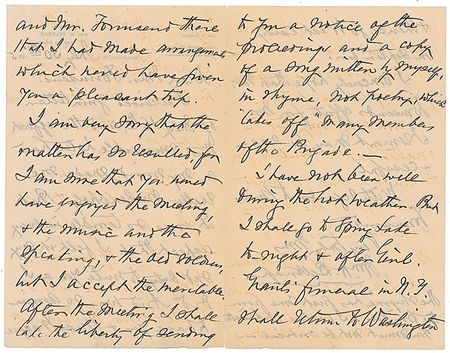 and Mr. Townsend there
that I had made arrangements
which would have given
you a pleasant trip.
I am very sorry that the
matter has so resulted, for
I am sure that you would
have enjoyed the Meeting,
& the music and the
speaking, & the old soldiers,
but I accept the inevitable.
After the Meeting I shall
take the liberty of sending
to you a notice of the
proceedings and a copy
of a song written by myself,
in rhyme, not poetry, which
"takes off" many Members
of the Brigade. —
I have not been well
during the hot weather. But
I shall go to Spring Lake
to night & after Genl.
Grant's funeral in N.Y.
shall return to Washington